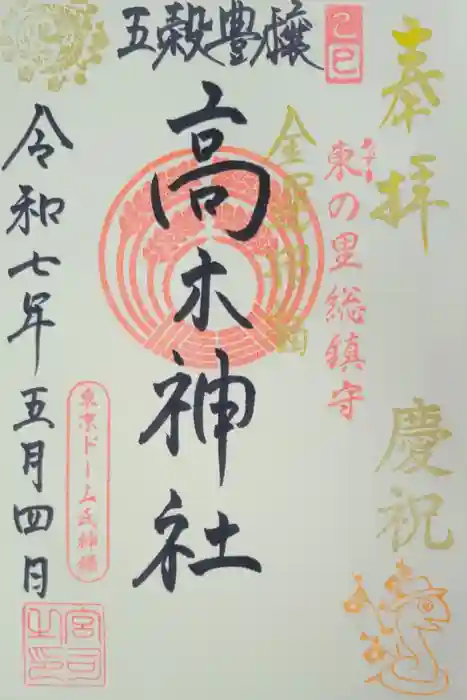 奉拝
慶祝
乙巳
東の里総鎮守
五穀豊穣
高木神社
令和七年五月四日
東京ドーム氏神様
宮司之印